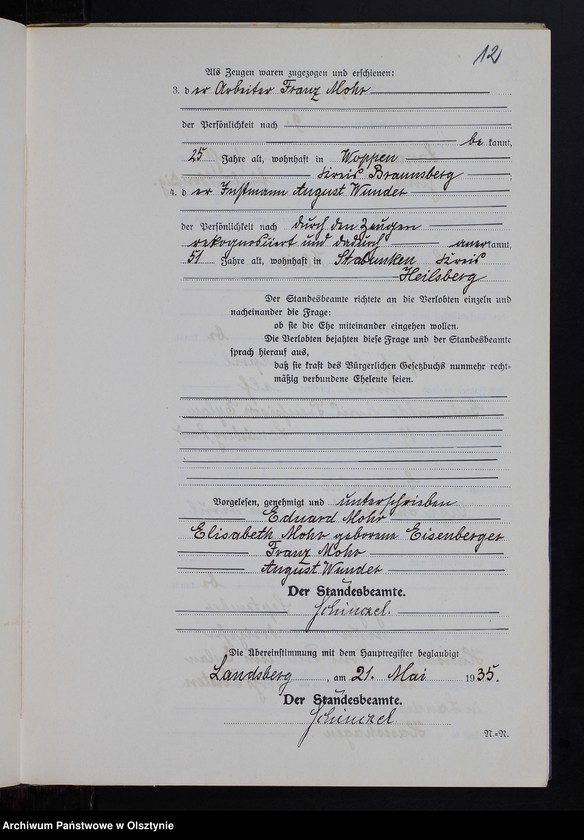 12
Als Zeugen waren zugezogen und erschienen:
3. der Arbeiter Franz Mohr
der Persönlichkeit nach
be kannt,
25 Jahre alt, wohnhaft in Woppen
Kreis Braunsberg
4. der Instmann August Wunder
der Persönlichkeit nach durch den Zeugen
rekognosziert und dadurch anerkannt,
51 Jahre alt, wohnhaft in Kreis
Heilsberg
Der Standesbeamte richtete an die Verlobten einzeln und
nacheinander die Frage:
ob sie die Ehe miteinander eingehen wollen.
Die Verlobten bejahten diese Frage und der Standesbeamte
sprach hierauf aus,
daß sie kraft des Bürgerlichen Gesetzbuchs nunmehr recht-
mäßig verbundene Eheleute seien.
Vorgelesen, genehmigt und unterschrieben
Eduard Mohr
Elisabeth Mohr geborene Eisenberger
Franz Mohr
August Wunder
Der Standesbeamte.
Schinzel.
Die Übereinstimmung mit dem Hauptregister beglaubigt
Landsberg, am 21. Mai 1935.
Der Standesbeamte.
Schinzel
N.-N.
Archiwum Państwowe w Olsztynie